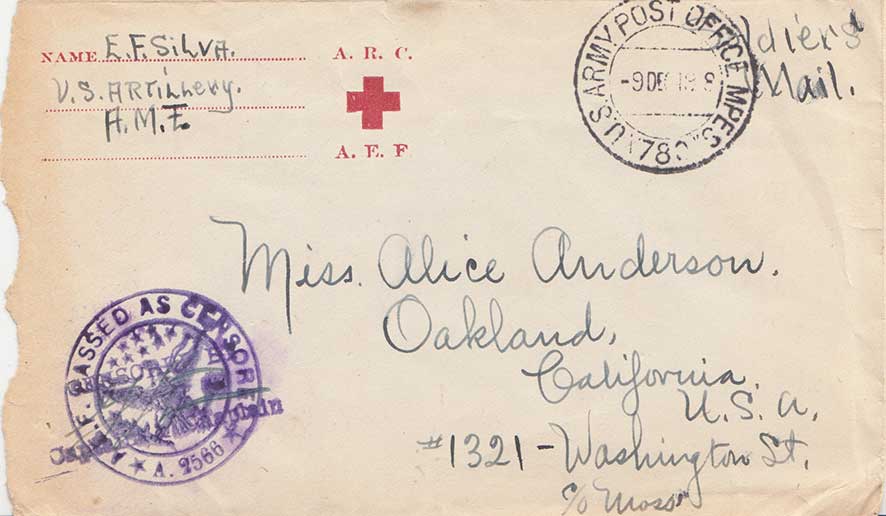 NAME E.F. SILVA.
U.S. ARTillery.
A.R.C.
A.E.F
U.S. ARMY POST OFFICE MPES
-9 DEC
Mail.
Miss. Alice Anderson.
Oakland,
California.
U.S.A.
#1321-Washington St.
c/o Moss
PASSED AS CENSORED
A. 2566